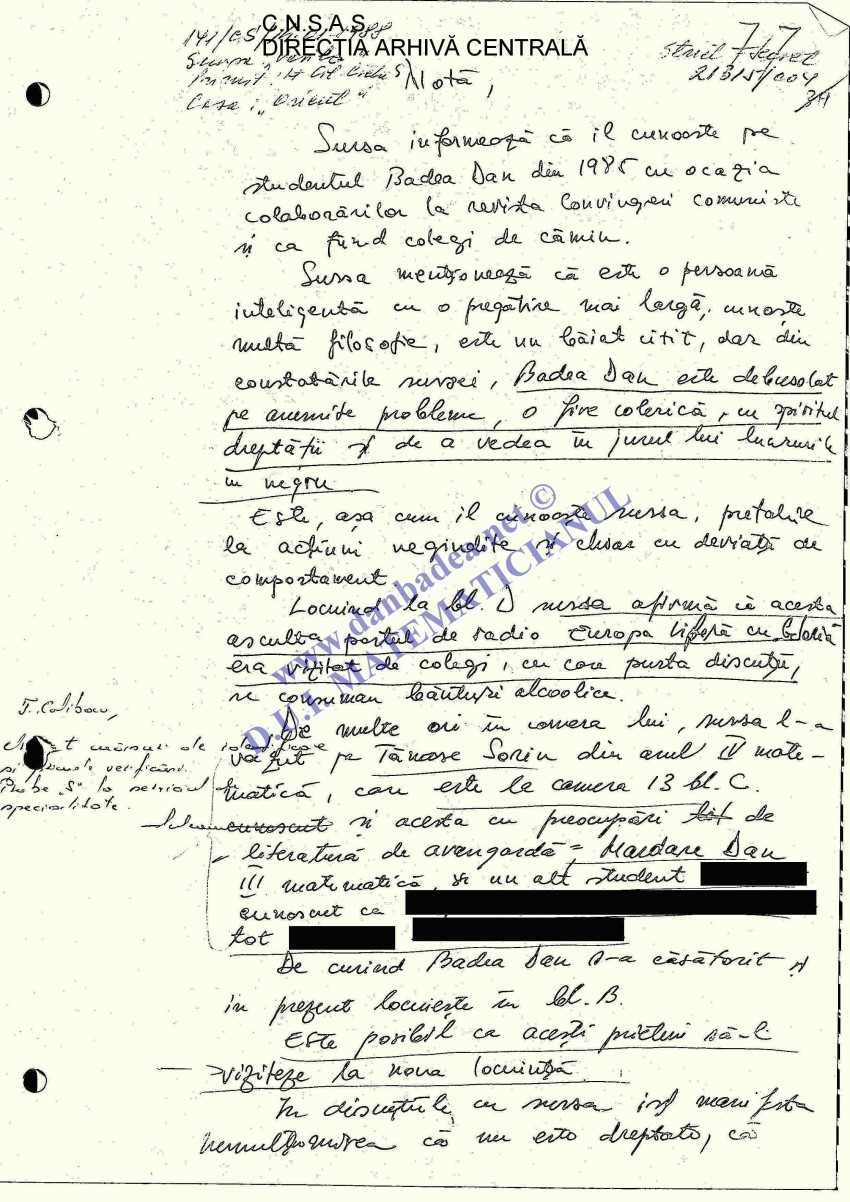 C.N.S.A.S.
DIRECȚIA ARHIVĂ CENTRALĂ
77
Strict secret
141/CS/ 1988
Sursa "
Primit: lt. col.
Casa: "Orient"
Notă,
Sursa informează că îl cunoaște pe
studentul Badea Dan din 1985 cu ocazia
colaborărilor la revista Convingeri comuniste
și ca fiind colegi de cămin.
Sursa menționează că este o persoană
inteligentă cu o pregătire mai largă, cunoaște
multă filosofie, este un băiat citit, dar din
constatările sursei, Badea Dan este debusolat
pe anumite probleme, o fire colerică, cu spiritul
dreptății și de a vedea în jurul lui lucrurile
în negru
Este, așa cum îl cunoaște sursa, pretabil
la acțiuni negîndite și chiar cu deviații de
comportament.
Locuind la bl. D sursa afirmă că acesta
asculta postul de radio Europa liberă cu
era vizitat de colegi, cu care purta discuții,
se consumau băuturi alcoolice.
De multe ori în camera lui, sursa l-a
văzut pe Tănase Sorin din anul IV mate-
matică, care este la camera 13 bl. C.
cunoscut și acesta cu preocupări tot de
literatură de avangardă, Mardare Dan
III matematică, și un alt student
cunoscut ca
tot
De curînd Badea Dan s-a căsătorit și
în prezent locuiește în bl. B.
Este posibil ca acești prieteni să-l
viziteze la noua locuință.
În discuțiile cu sursa își manifesta
nemulțumirea că nu este dreptate, că
verificări.
la serviciul
specialitate.
www.danbadea.net ©
D.U.I. MATEMATICIANUL